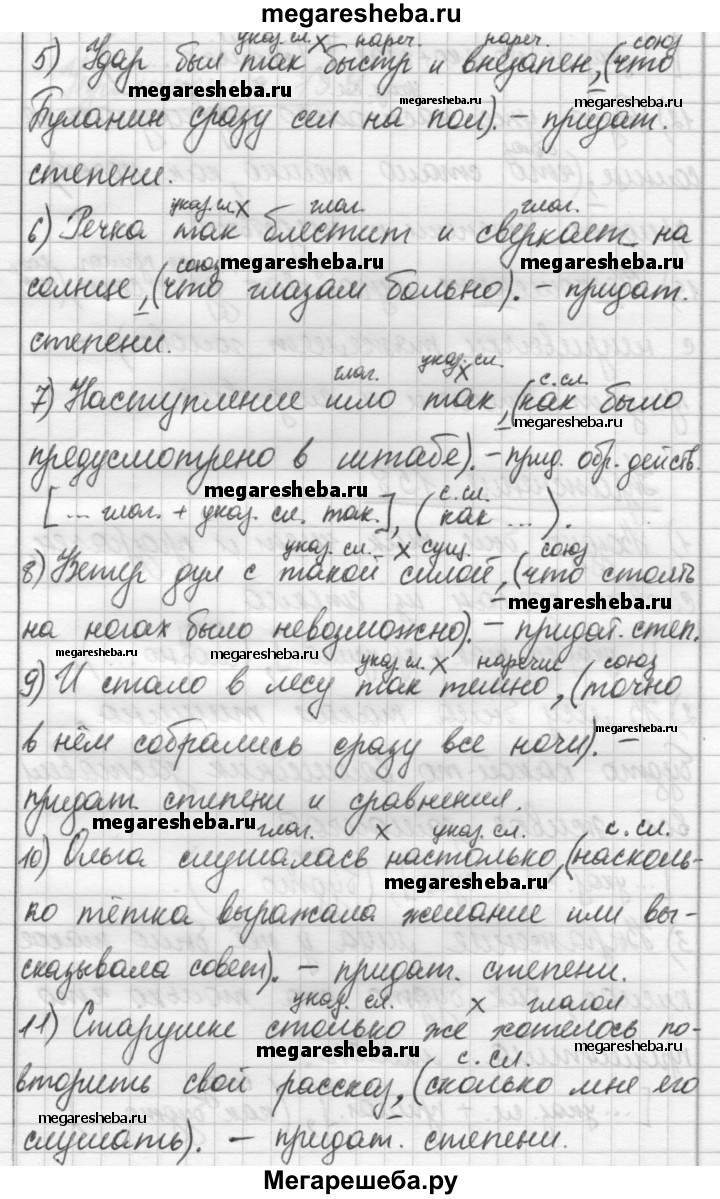 megaresheba.ru
указ. сл. х нареч. нареч. союз
5) Удар был так быстр и внезапен, (что
megaresheba.ru megaresheba.ru megaresheba.ru
Буланин сразу сел на пол). – придат.
степени.
указ. сл. х глаг. глаг.
6) Речка так блестит и сверкает на
союз megaresheba.ru megaresheba.ru
солнце, (что глазам больно). – придат.
степени.
глаг. указ. сл. х с. сл.
7) Наступление шло так, (как было
megaresheba.ru
предусмотрено в штабе). – прид. обр. действ.
megaresheba.ru с. сл.
[... глаг. + указ. сл. так.], (как ...).
указ. сл. – х сущ. союз
8) Ветер дул с такой силой, (что стоять
megaresheba.ru
на ногах было невозможно). – придат. степ.
megaresheba.ru megaresheba.ru megaresheba.ru
указ. сл. х наречие союз
9) И стало в лесу так темно, (точно
megaresheba.ru
в нём собрались сразу все ночи). –
придат. степени и сравнения.
megaresheba.ru megaresheba.ru
глаг. х указ. сл. с. сл.
10) Ольга слушалась настолько, (насколь-
megaresheba.ru
ко тётка выражала желание или вы-
сказывала совет). – придат. степени.
указ. сл. х глагол
11) Старушке столько же хотелось по-
megaresheba.ru с. сл. megaresheba.ru
вторить свой рассказ, (сколько мне его
megaresheba.ru megaresheba.ru
слушать). – придат. степени.
Мегарешеба.ру